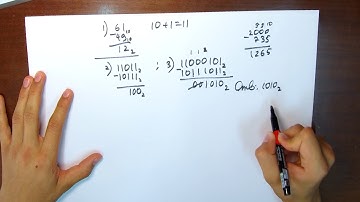 1) 61₁₀ 10+1=11
-49₁₀
12₂
9 9 10
-2000
735
1265
2) 11011₂
-10111₂
100₂
;
3) 11000101₂
-10111011₂
001010₂ Ответ: 1010₂